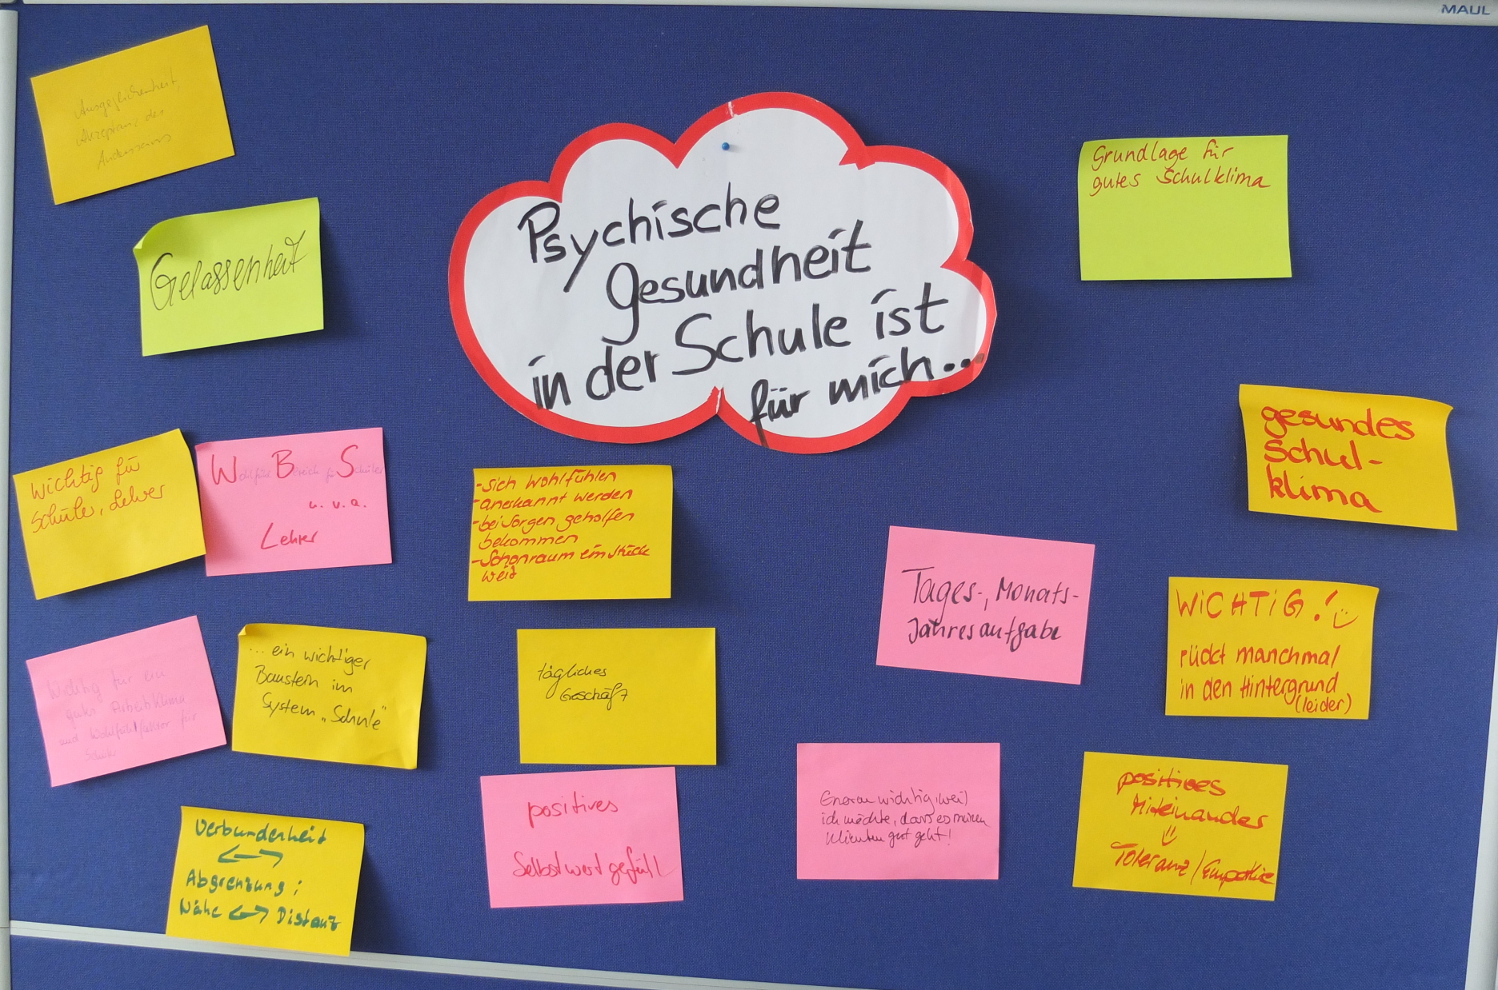 MAUL
Psychische
gesundheit
in der Schule ist
für mich...
Ausgeglichenheit,
Akzeptanz des
Andersseins
Gelassenheit
Grundlage für
gutes Schulklima
gesundes
Schul-
klima
wichtig für
Schüler, Lehrer
Wohlfühl Bereich für Schüler
u. v. a.
Lehrer
-sich wohlfühlen
-anerkannt werden
-bei Sorgen geholfen
bekommen
-Schonraum ein Stück
weit
Tages-, Monats-
Jahresaufgabe
WiCHTiG!
rückt manchmal
in den Hintergrund
(leider)
wichtig für ein
gutes Arbeitsklima
und Wohlfühlfaktor für
... ein wichtiger
Baustein im
System „Schule"
tägliches
Geschäft
positives
Selbstwertgefühl
Enorm wichtig, weil
ich möchte, dass es meinen
Klienten gut geht!
positives
Miteinander
Toleranz/Empathie
Verbundenheit
↔
Abgrenzung;
Nähe ↔ Distanz